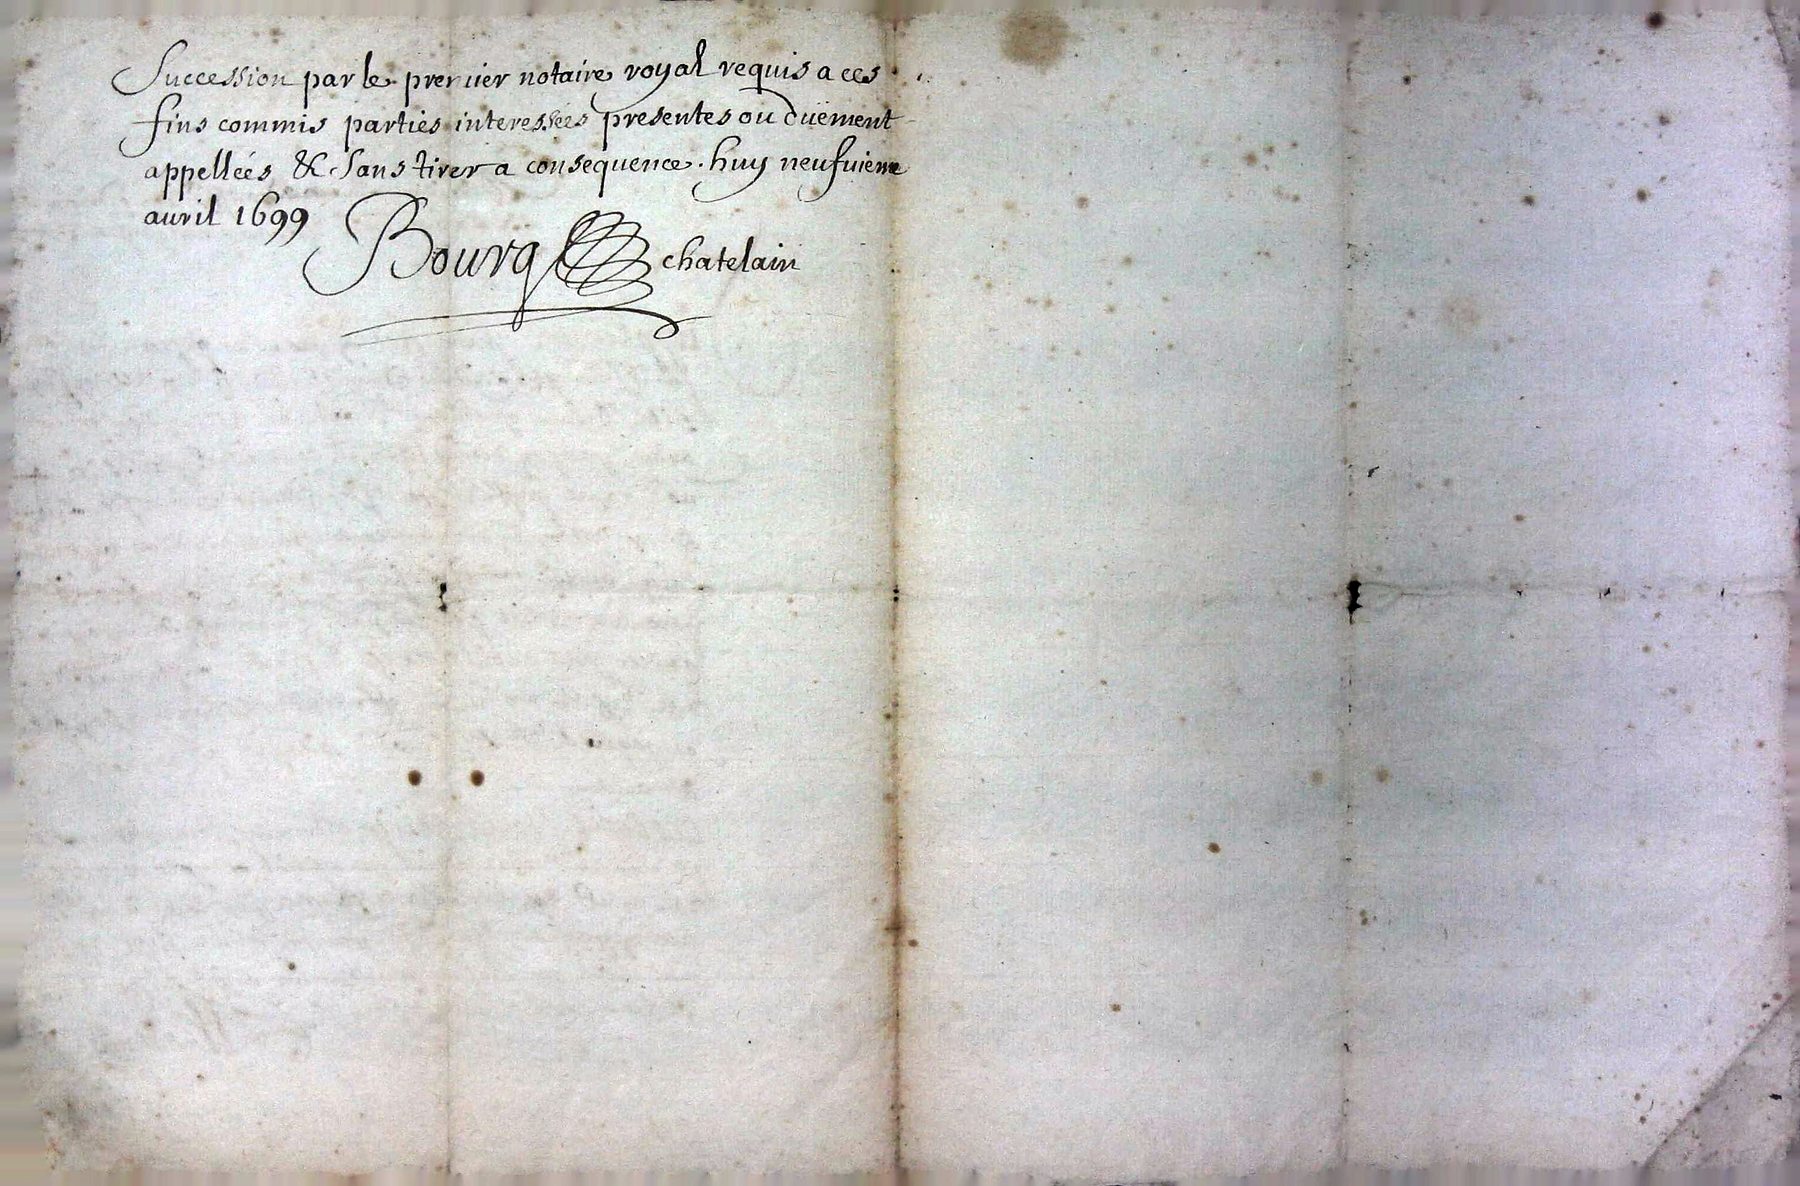 Succession par le premier notaire royal requis a ces
fins commis parties interessées presentes ou düement
appellées & sans tirer a consequence. huy neufuieme
auril 1699
Bourg chatelain